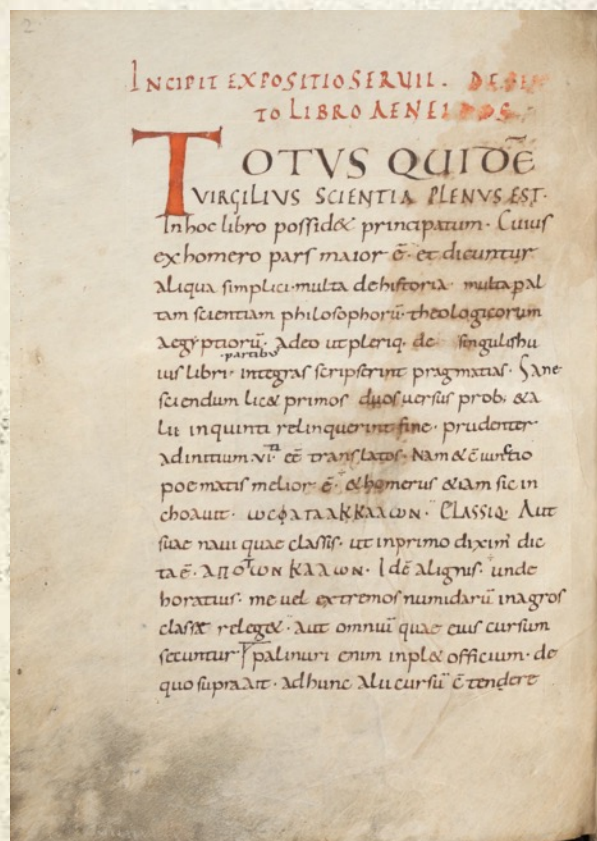 2
INCIPIT EXPOSITIO SERVII. DE
TO LIBRO AENEIDOS
TOTVS QUIDĒ
VIRGILIVS SCIENTIA PLENVS EST.
In hoc libro possid& principatum. Cuius
ex homero pars maior ē. et dicuntur
aliqua simplici. multa de historia. multa pal
tam scientiam philosophorū. theologicorum
aegyptiorū. Adeo ut pleriq. de singulis hu
.partibus
ius libri. integras scripserint pragmatias. Sane
sciendum lic& primos duos uersus prob; &a
lii in quinti relinquerint fine. prudenter
ad initium .vi. eē translatos. Nam & ē iunctio
poematis melior ē. & homerus &iam sic in
choauit. ωςφατаακκλλων. CLASSIQ. Aut
suae naui quae classis. ut in primo dixim' dic
ta ē. αποτων καλων. Idē a lignis. unde
horatius. me uel extremos numidarū in agros
classe releg&. Aut omnium quae eius cursum
secuntur. palinuri enim inpl& officium. de
quo supra ait. ad hunc alii cursū ē tendere